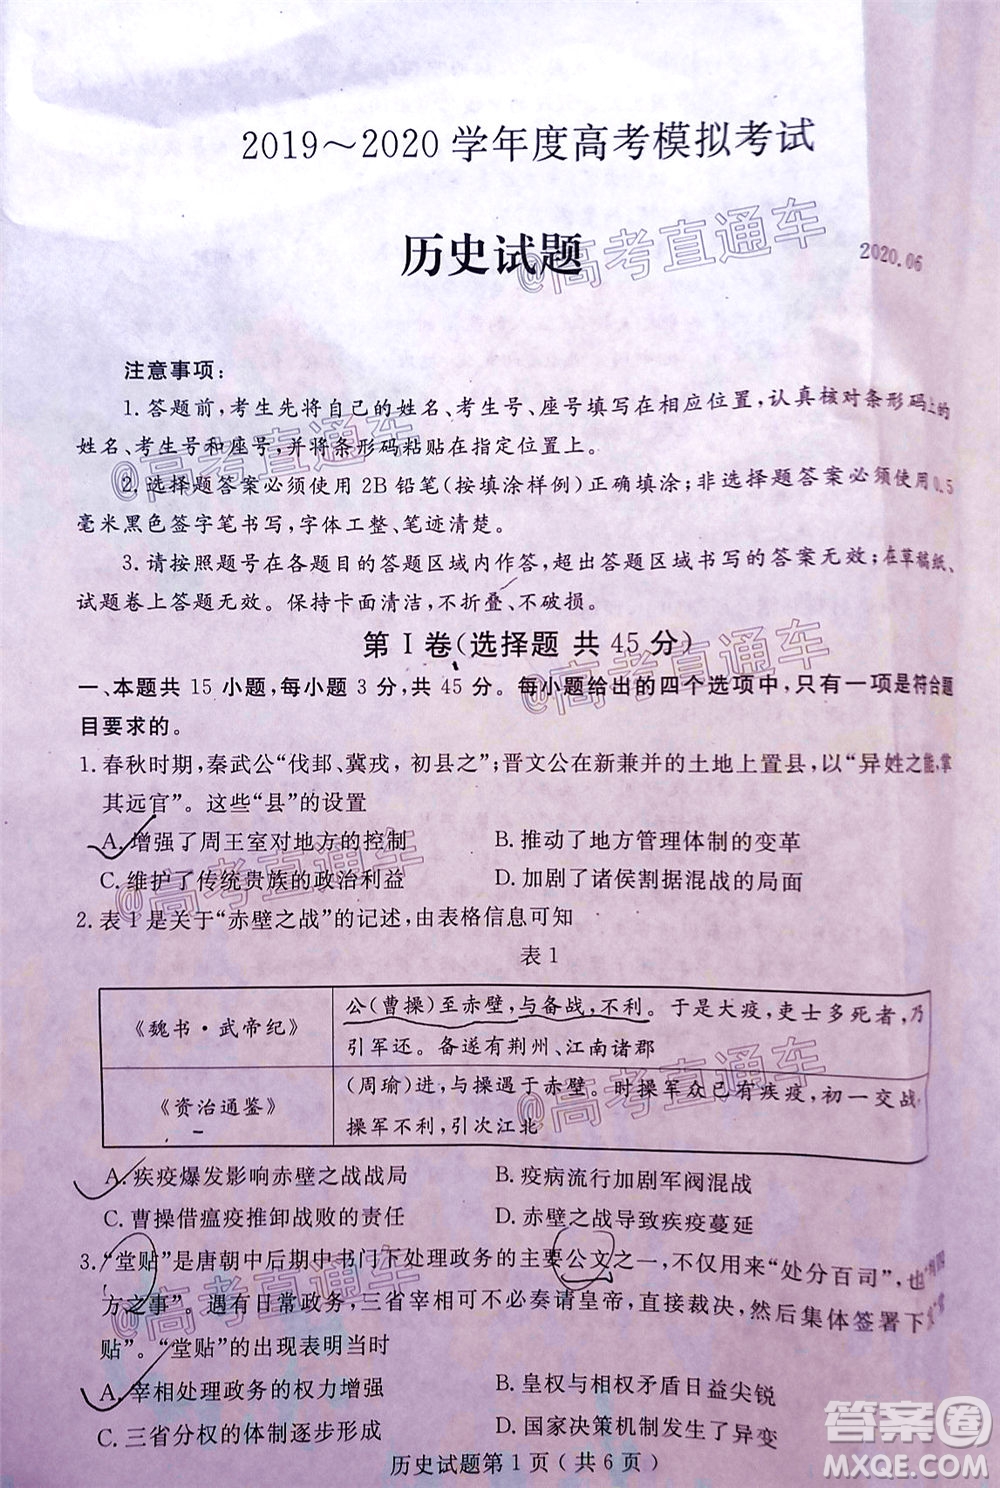 2019～2020 学年度高考模拟考试
历史试题
@高考直通车
2020.06
注意事项：
1. 答题前，考生先将自己的姓名、考生号、座号填写在相应位置，认真核对条形码上的
姓名、考生号和座号，并将条形码粘贴在指定位置上。
@高考直通车
2. 选择题答案必须使用 2B 铅笔（按填涂样例）正确填涂；非选择题答案必须使用 0.5
毫米黑色签字笔书写，字体工整、笔迹清楚。
3. 请按照题号在各题目的答题区域内作答，超出答题区域书写的答案无效；在草稿纸、
试题卷上答题无效。保持卡面清洁，不折叠、不破损。
第 I 卷（选择题 共 45 分）
@高考直通车
一、本题共 15 小题，每小题 3 分，共 45 分。每小题给出的四个选项中，只有一项是符合题
目要求的。
1. 春秋时期，秦武公“伐邽、冀戎，初县之”；晋文公在新兼并的土地上置县，以“异姓之能，掌
其远官”。这些“县”的设置
A. 增强了周王室对地方的控制 B. 推动了地方管理体制的变革
C. 维护了传统贵族的政治利益 D. 加剧了诸侯割据混战的局面
@高考直通车
2. 表 1 是关于“赤壁之战”的记述，由表格信息可知
表 1
《魏书·武帝纪》 公（曹操）至赤壁，与备战，不利。于是大疫，吏士多死者，乃
引军还。备遂有荆州、江南诸郡
《资治通鉴》 （周瑜）进，与操遇于赤壁。时操军众已有疾疫，初一交战，
操军不利，引次江北
@高考直通车
A. 疾疫爆发影响赤壁之战战局 B. 疫病流行加剧军阀混战
C. 曹操借瘟疫推卸战败的责任 D. 赤壁之战导致疾疫蔓延
3. “堂贴”是唐朝中后期中书门下处理政务的主要公文之一，不仅用来“处分百司”，也
方之事”。遇有日常政务，三省宰相可不必奏请皇帝，直接裁决，然后集体签署下
贴”。“堂贴”的出现表明当时
@高考直通车
A. 宰相处理政务的权力增强 B. 皇权与相权矛盾日益尖锐
C. 三省分权的体制逐步形成 D. 国家决策机制发生了异变
历史试题第 1 页（共 6 页）
答案圈
MXQE.COM